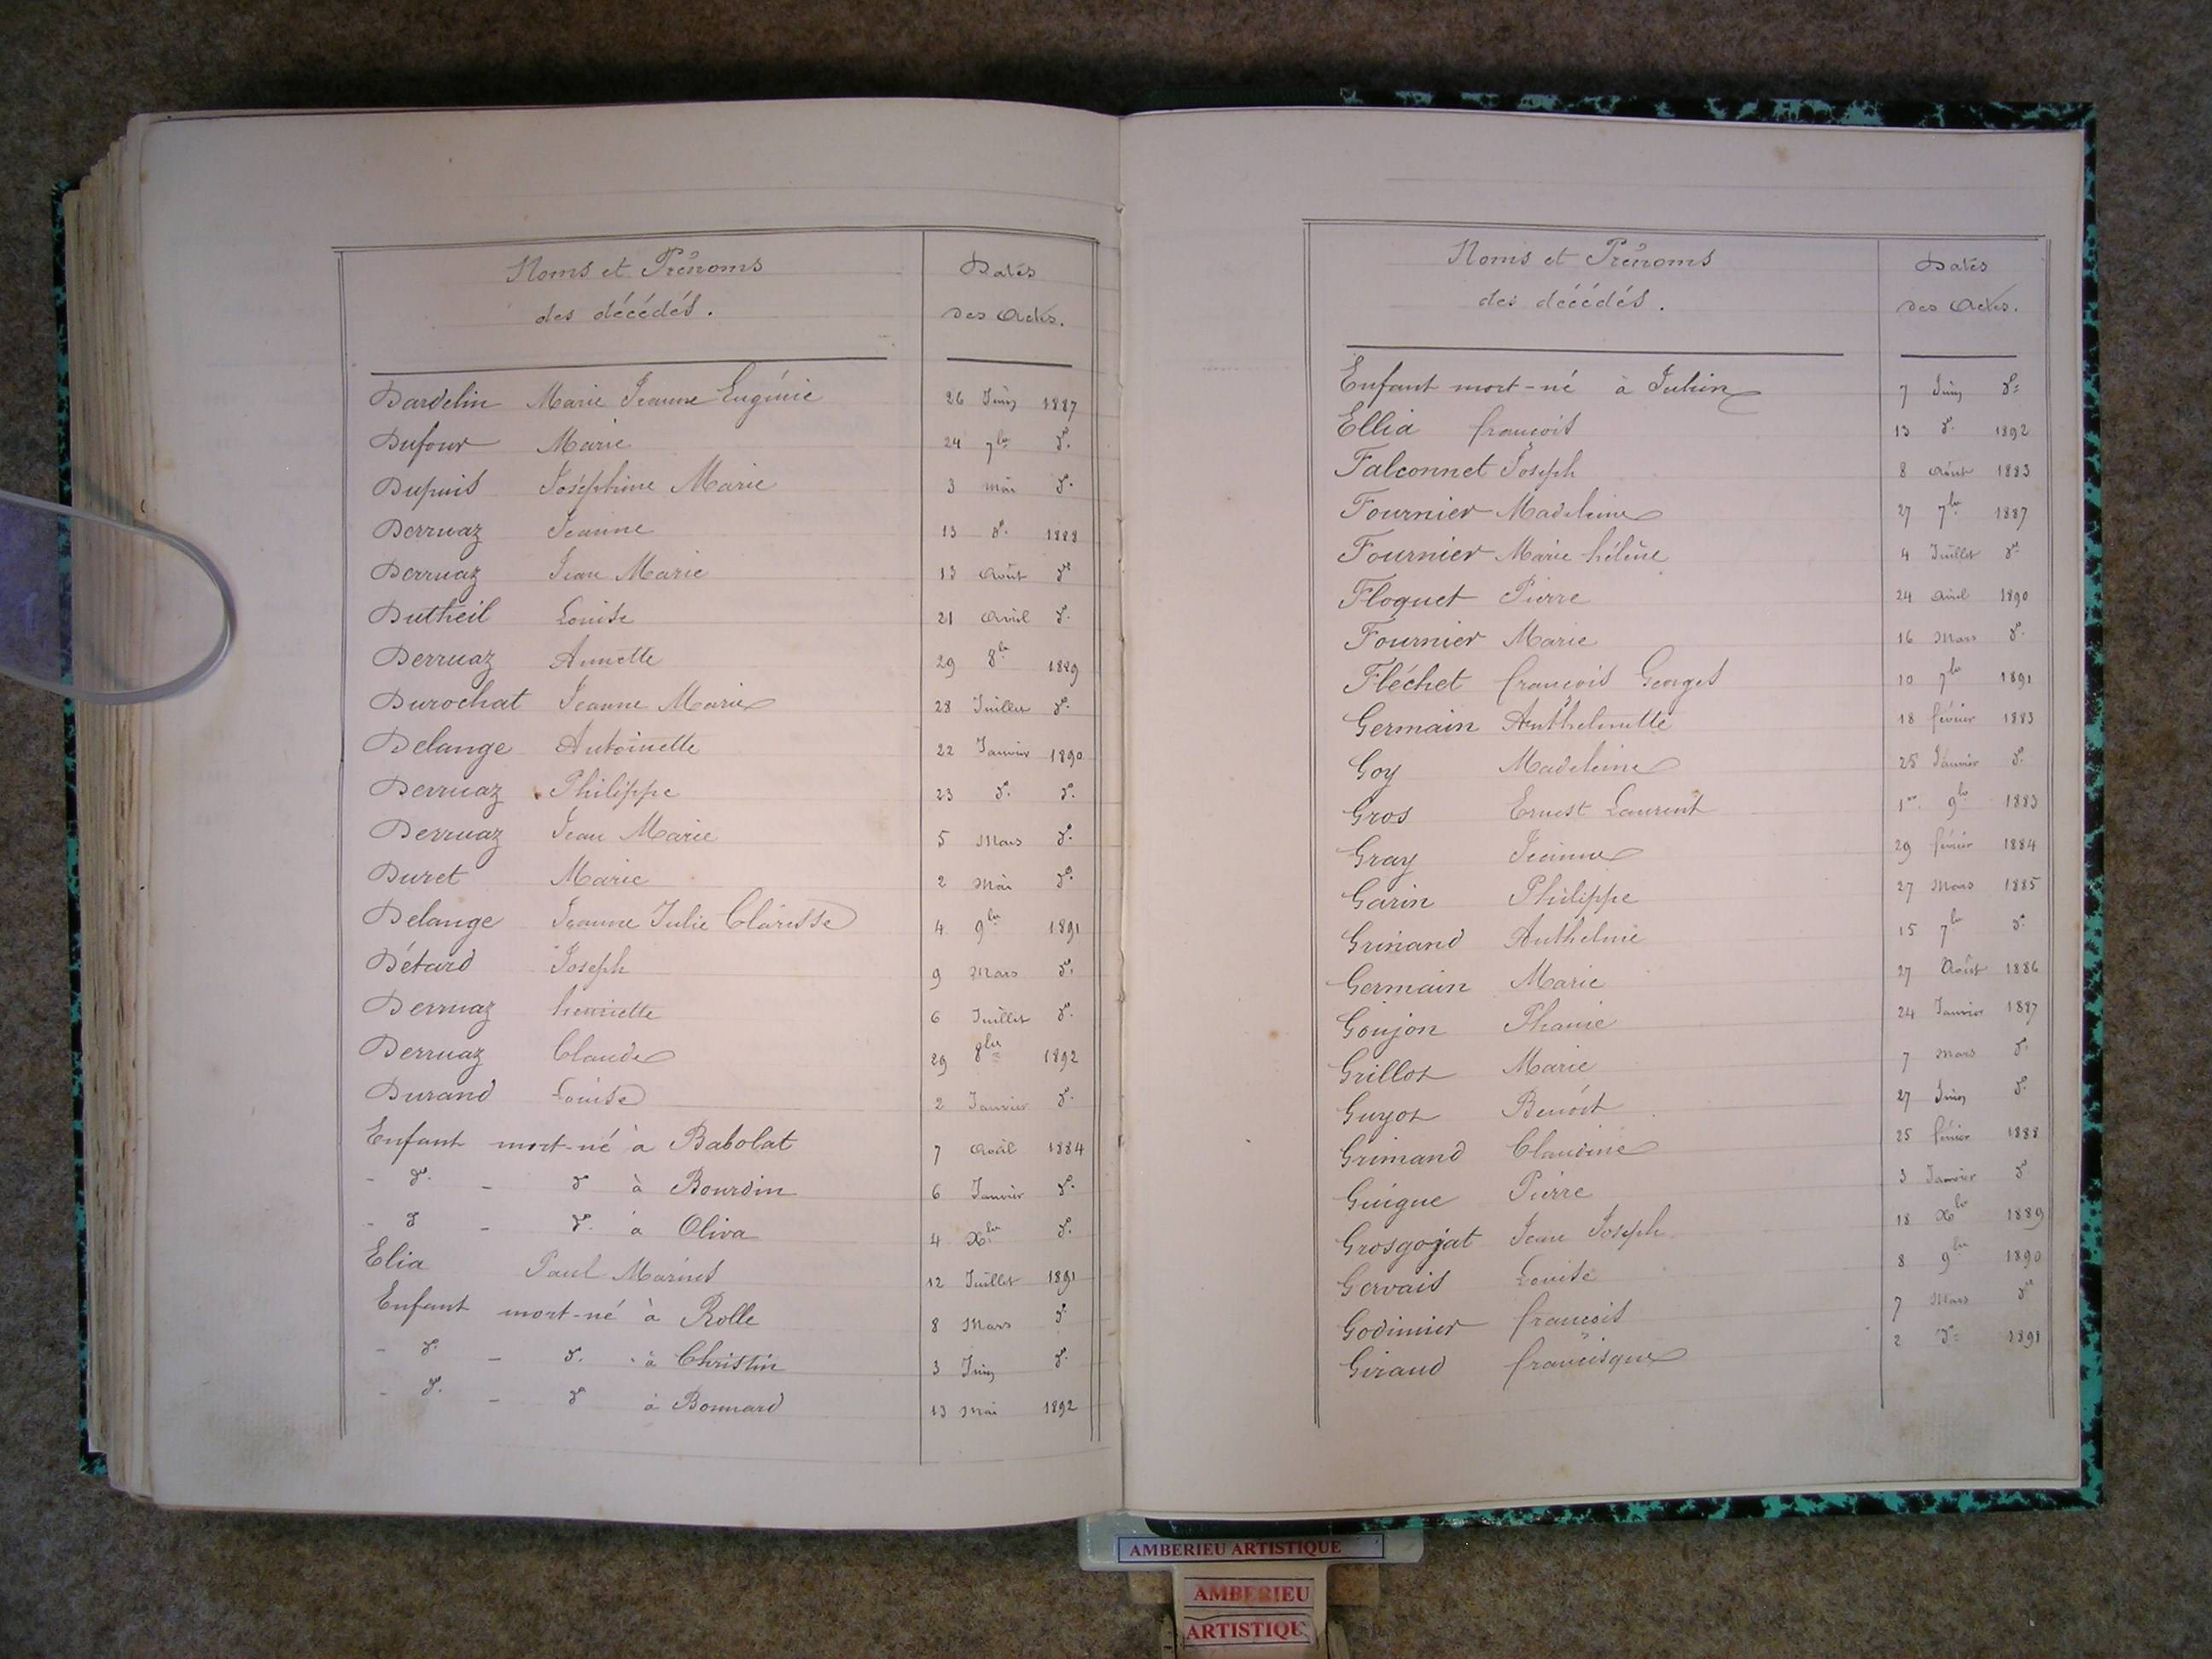 Noms et Prénoms
des décédés.
Dates
des Actes.
Dardelin Marie Jeanne Eugénie 26 Juin 1887
Dufour Marie 24 7bre do.
Dupuis Joséphine Marie 3 Mai do.
Derruaz Jeanne 13 do. 1888
Derruaz Jean Marie 13 Août do
Dutheil Louise 21 Avril do.
Derruaz Annette 29 8bre 1889
Durochat Jeanne Marie 28 Juillet do.
Delange Antoinette 22 Janvier 1890
Derruaz Philippe 23 do. do.
Derruaz Jean Marie 5 Mars do.
Duret Marie 2 Mai do.
Delange Jeanne Julie Clarisse 4 9bre 1891
Détard Joseph 9 Mars do.
Derruaz henriette 6 Juillet do.
Derruaz Claude 29 8bre 1892
Durand Louise 2 Janvier do.
Enfant mort-né à Babolat 7 Avril 1884
- do. - do à Bourdin 6 Janvier do.
- do - do. à Oliva 4 Xbre do.
Elia Paul Marius 12 Juillet 1891
Enfant mort-né à Rolle 8 Mars do
- do. - do. à Christin 3 Juin do.
- do. - do à Bonnard 13 Mai 1892
Noms et Prénoms
des décédés.
Dates
des Actes.
Enfant mort-né à Julien 7 Juin do
Ellia françois 13 do. 1892
Falconnet Joseph 8 Août 1883
Fournier Madeleine 27 7bre 1887
Fournier Marie hélène 4 Juillet do
Floquet Pierre 24 Avril 1890
Fournier Marie 16 Mars do.
Fléchet françois Georges 10 7bre 1891
Germain Anthelmette 18 février 1883
Goy Madeleine 25 Janvier do.
Gros Ernest Laurent 1er 9bre 1883
Gray Jeanne 29 février 1884
Garin Philippe 27 Mars 1885
Grimand Anthelmie 15 7bre do
Germain Marie 27 Août 1886
Goujon Phanie 24 Janvier 1887
Grillot Marie 7 Mars do.
Guyot Benoit 27 Juin do.
Grimand Claudine 25 février 1888
Guigue Pierre 3 Janvier do
Grosgojat Jean Joseph 18 Xbre 1889
Gervais Louise 8 9bre 1890
Godimier françois 7 Mars do
Giraud francisque 2 do 1891
AMBERIEU ARTISTIQUE
AMBERIEU
ARTISTIQU